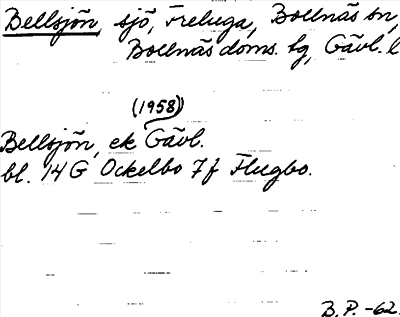 Bellsjön, sjö, Freluga, Bollnäs sn,
Bollnäs doms. hg, Gävl. l
(1958)
Bellsjön, ek Gävl.
bl. 14 G Ockelbo 7 f Flugbo.
B.P. -62.